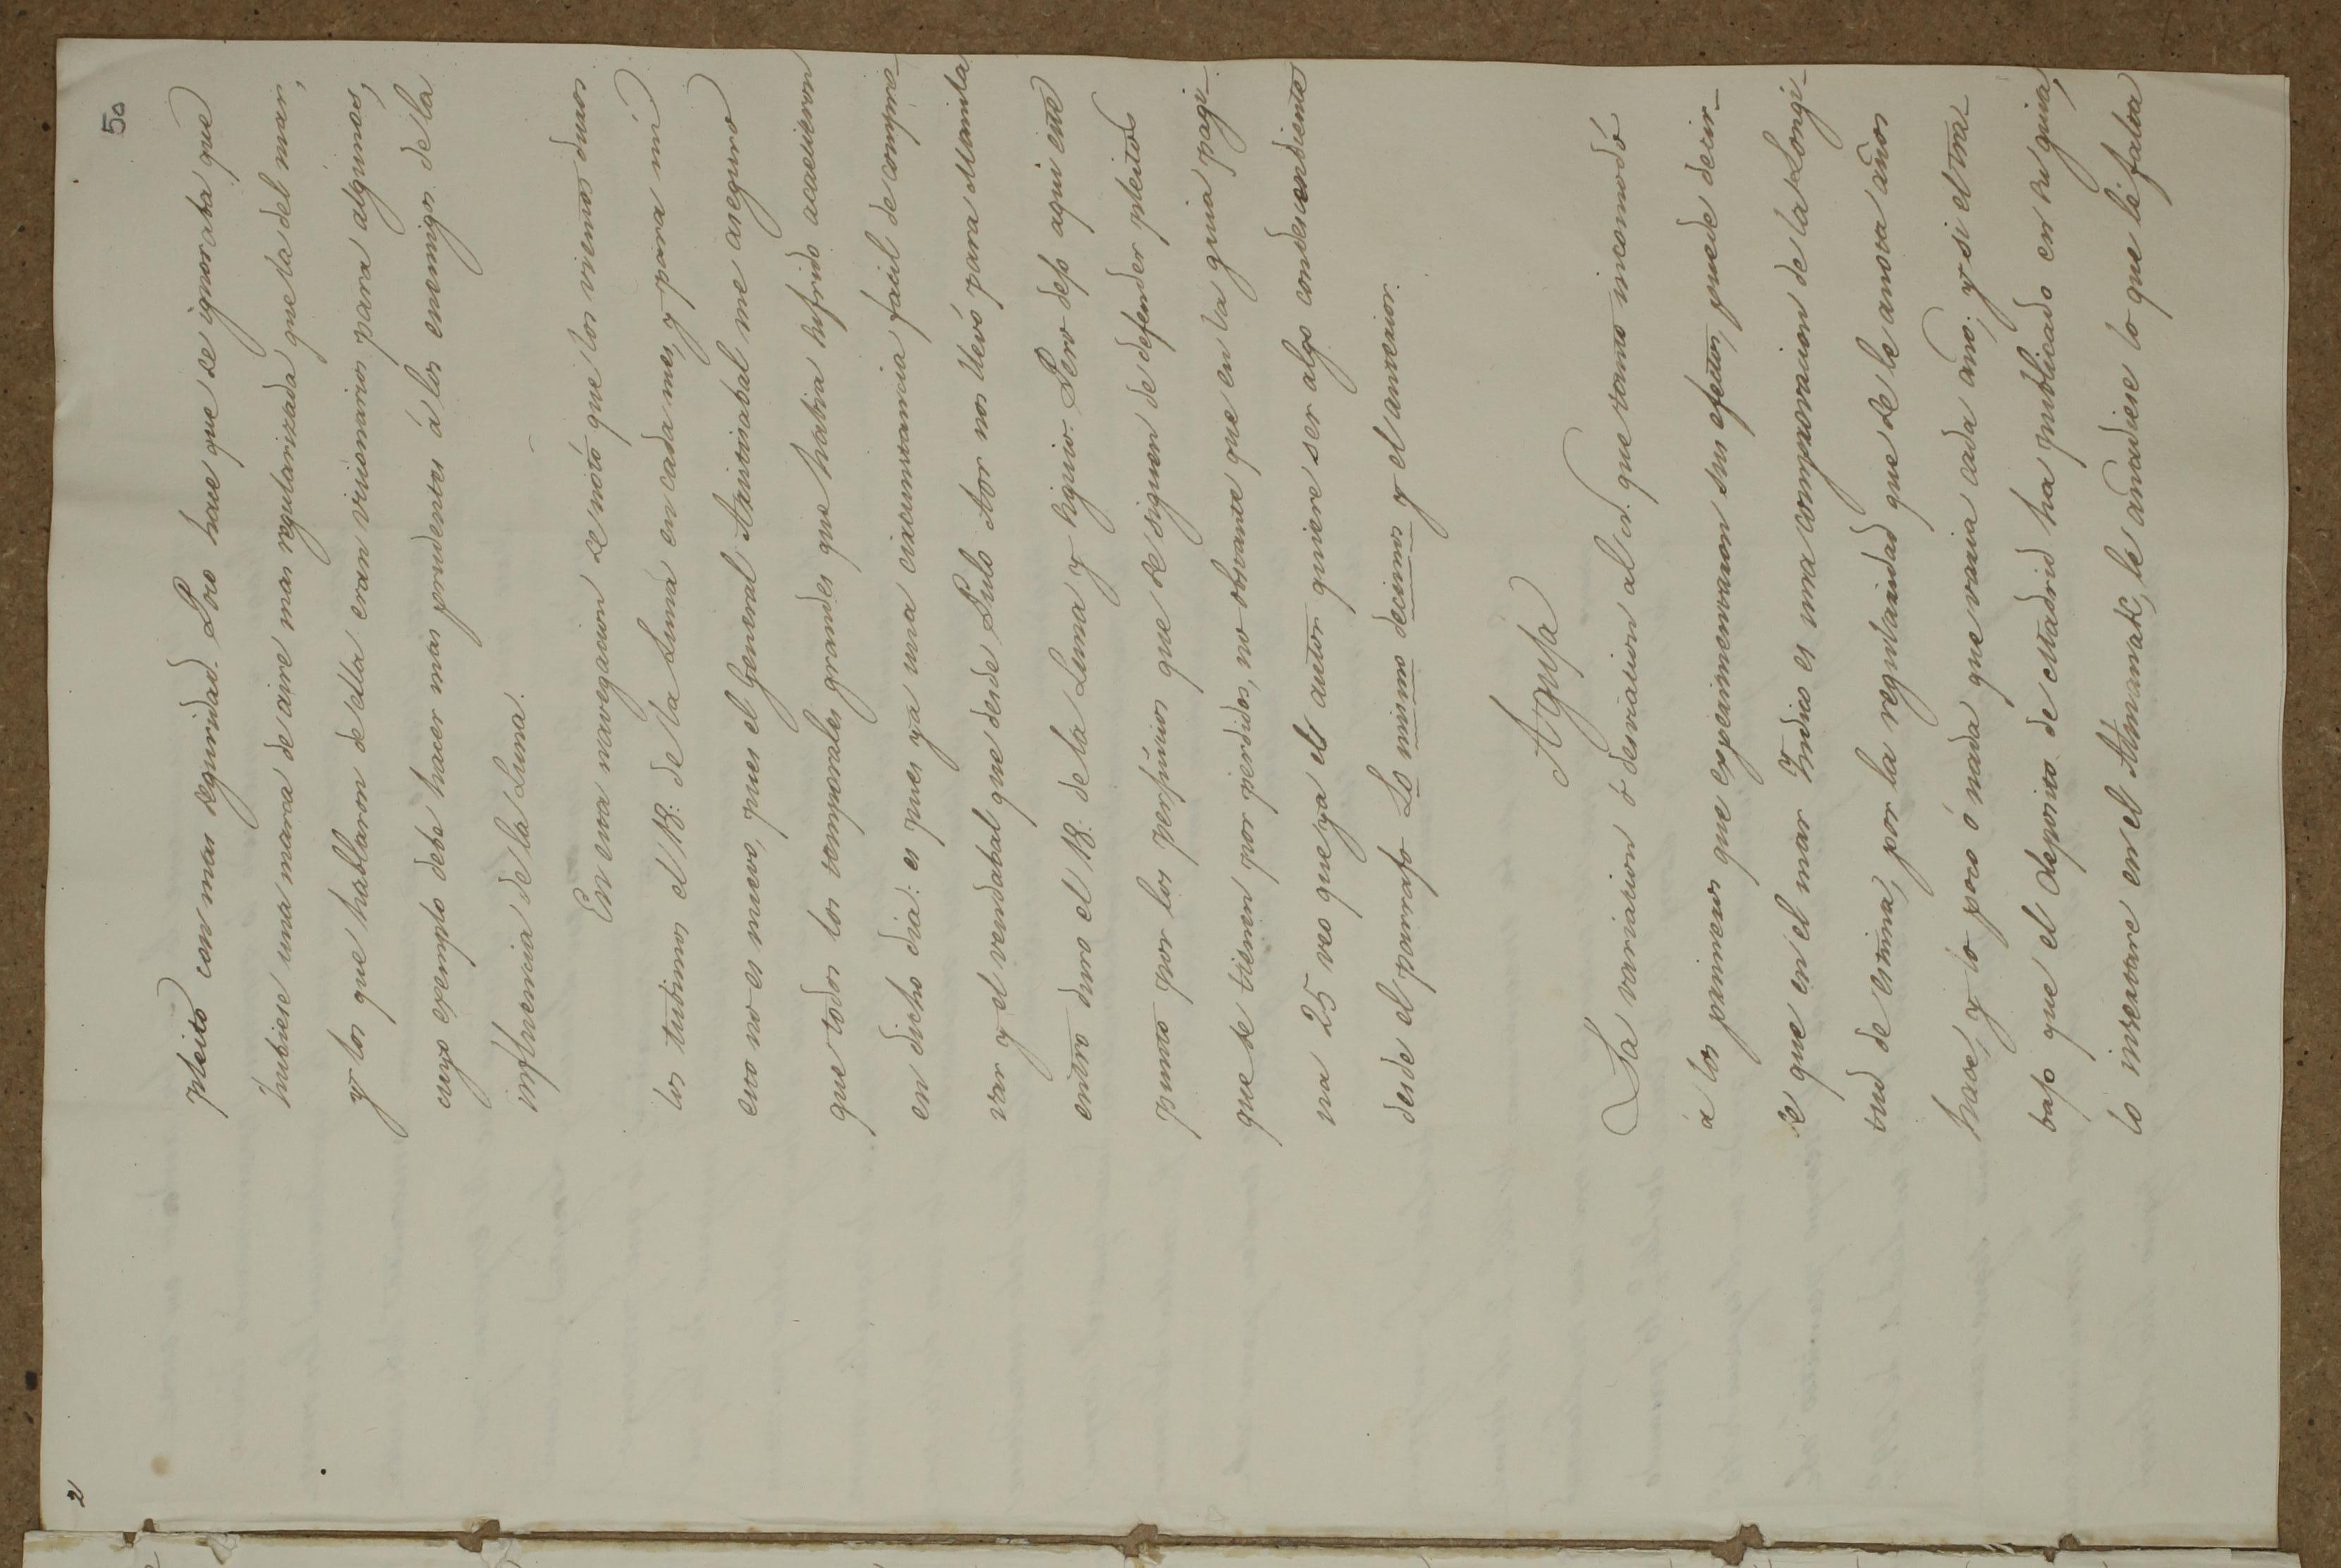 2
50
pleito con mas seguridad. Poco hace que se ignoraba que
hubiese una marea de aire mas regularizada que la del mar,
y los que hablaron de ella eran visionarios para algunos,
cuyo exemplo debe hacer mas prudentes á los enemigos de la
influencia de la Luna.
En esta navegacion se notó que los vientos duros
los tubimos el 18: de la Luna en cada mes, y para mi
esto no es nuevo, pues el General Aristisabal me aseguró
que todos los temporales grandes que habia sufrido acaecieron
en dicho dia: es pues ya una circunstancia facil de compro-
var y el vendabal que desde Pulo Aor nos llevó para Manila
entró duro el 18: de la Luna y siguio. Pero dejo aqui este
punto por los perjuicios que se siguen de defender pleitos
que se tienen por perdidos, no obstante que en la guia pagi-
na 25 veo que ya el autor quiere ser algo condescendiente
desde el parrafo Lo mismo decimos y el anterior.
Aguja
La variacion ó desviacion al O. que tanto incomodó
á los primeros que experimentaron sus efectos, puede decir-
se que en el mar Yndio es una comprovacion de la Longi-
tud de estima, por la regularidad que se le anota años
hace, y lo poco ó nada que varia cada año; y si el tra-
bajo que el deposito de Madrid ha publicado en su guia,
lo insertare en el Almanak, le añadiese lo que le falta